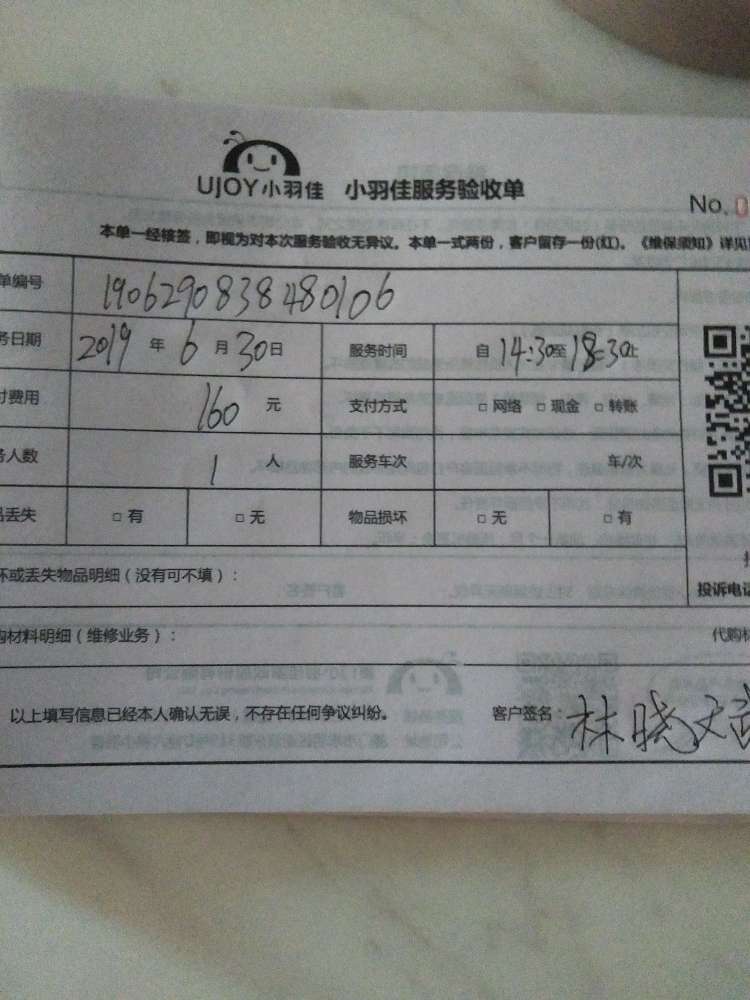 UJOY小羽佳 小羽佳服务验收单
No. 0
本单一经核签，即视为对本次服务验收无异议。本单一式两份，客户留存一份(红)。《维保须知》详见
单编号 1906290838480106
务日期 2019 年 6 月 30 日 服务时间 自 14:30 至 18:30 止
付费用 160 元 支付方式 □ 网络 □ 现金 □ 转账
务人数 1 人 服务车次 车/次
品丢失 □ 有 □ 无 物品损坏 □ 无 □ 有
坏或丢失物品明细（没有可不填）：
投诉电话
购材料明细（维修业务）： 代购材
以上填写信息已经本人确认无误，不存在任何争议纠纷。 客户签名：林晓